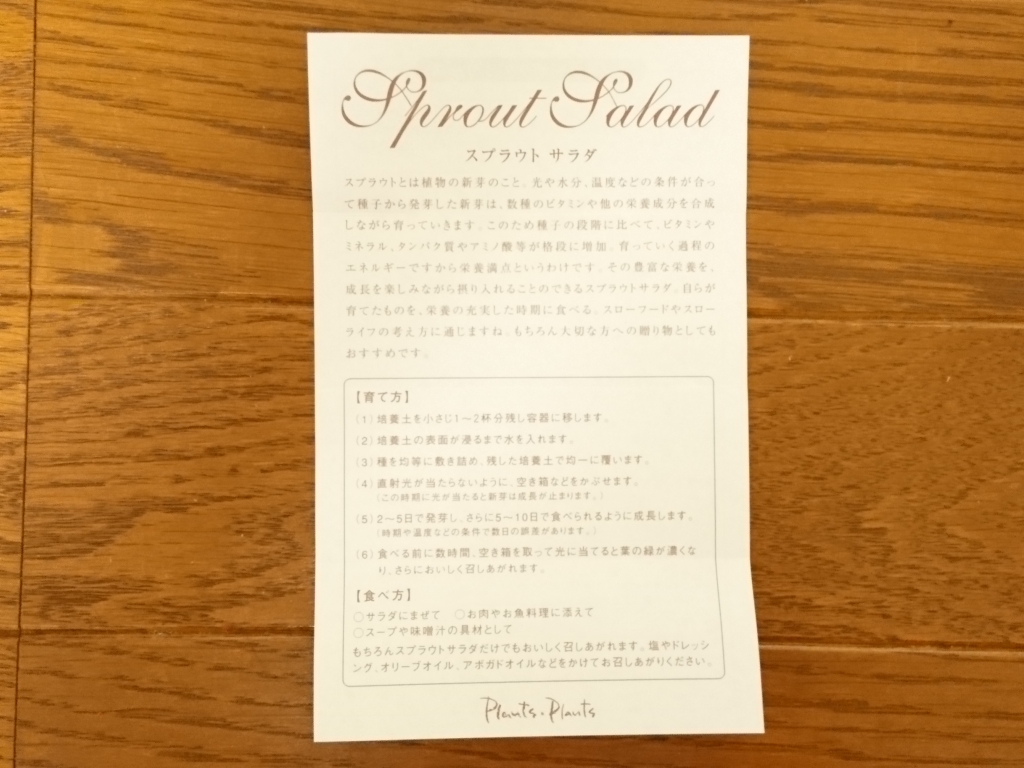 Sprout Salad
スプラウト サラダ
スプラウトとは植物の新芽のこと。光や水分、温度などの条件が合っ
て種子から発芽した新芽は、数種のビタミンや他の栄養成分を合成
しながら育っていきます。このため種子の段階に比べて、ビタミンや
ミネラル、タンパク質やアミノ酸等が格段に増加。育っていく過程の
エネルギーですから栄養満点というわけです。その豊富な栄養を、
成長を楽しみながら摂り入れることのできるスプラウトサラダ。自らが
育てたものを、栄養の充実した時期に食べる。スローフードやスロー
ライフの考え方に通じますね。もちろん大切な方への贈り物としても
おすすめです。
【育て方】
(1)培養土を小さじ1〜2杯分残し容器に移します。
(2)培養土の表面が浸るまで水を入れます。
(3)種を均等に敷き詰め、残した培養土で均一に覆います。
(4)直射光が当たらないように、空き箱などをかぶせます。
(この時期に光が当たると新芽は成長が止まります。)
(5)2〜5日で発芽し、さらに5〜10日で食べられるように成長します。
(時期や温度などの条件で数日の誤差があります。)
(6)食べる前に数時間、空き箱を取って光に当てると葉の緑が濃くな
り、さらにおいしく召しあがれます。
【食べ方】
○サラダにまぜて ○お肉やお魚料理に添えて
○スープや味噌汁の具材として
もちろんスプラウトサラダだけでもおいしく召しあがれます。塩やドレッシ
ング、オリーブオイル、アボガドオイルなどをかけてお召しあがりください。
Plants・Plants